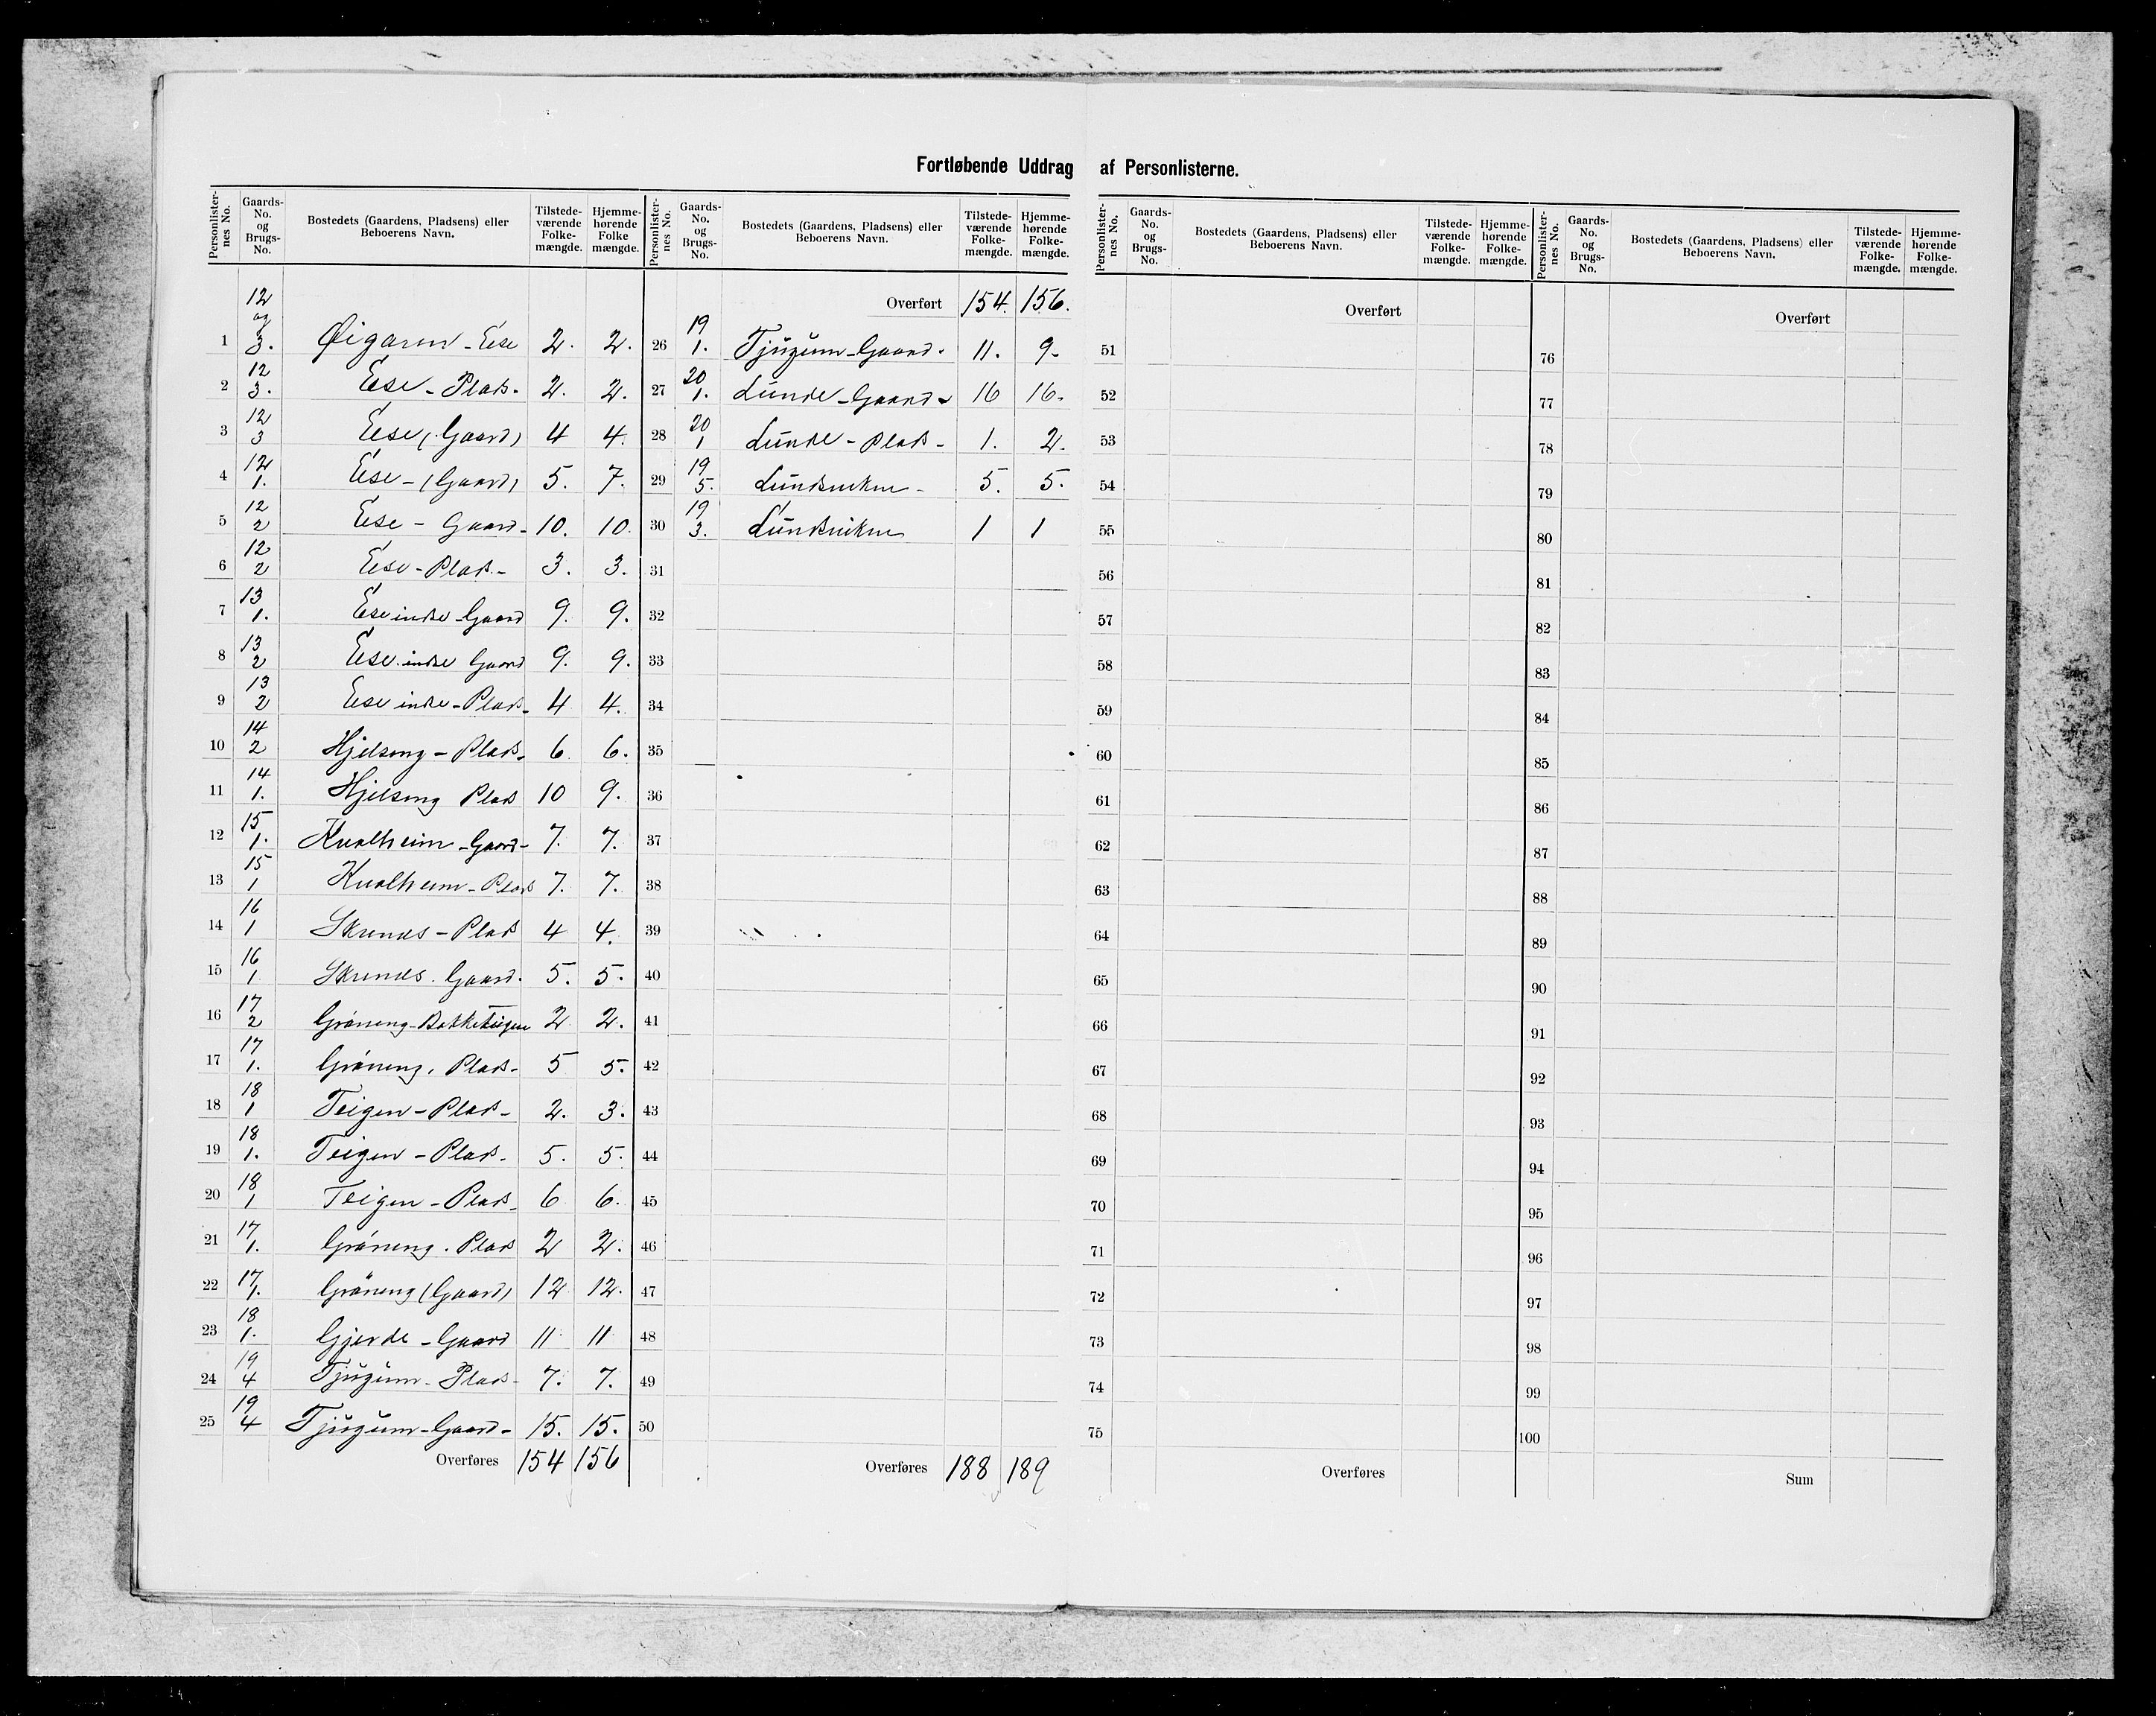 Fortløbende Uddrag af Personlisterne.
Personlisternes No. | Gaards-No. og Brugs-No. | Bostedets (Gaardens, Pladsens) eller Beboerens Navn. | Tilstedeværende Folkemængde. | Hjemmehørende Folke mængde.
1 | 12 og 3. | Øigarn - Ese | 2. | 2.
2 | 12 3. | Ese - Plads. | 2. | 2.
3 | 12 3 | Ese (Gaard) | 4 | 4.
4 | 12 1. | Ese - (Gaard) | 5. | 7.
5 | 12 2 | Ese - Gaard - | 10. | 10.
6 | 12 2 | Ese - Plads. - | 3. | 3.
7 | 13 1. | Ese indre - Gaard | 9. | 9.
8 | 13 2 | Ese indre Gaard | 9. | 9.
9 | 13 2 | Ese indre - Plads - | 4 | 4.
10 | 14 2 | Hjelseng - Plads. | 6 | 6.
11 | 14 1. | Hjelseng Plads | 10 | 9.
12 | 15 1. | Kvalheim - Gaard - | 7. | 7.
13 | 15 1 | Kvalheim - Plads | 7. | 7.
14 | 16 1 | - Plads | 4 | 4.
15 | 16 1. | Gaard. | 5. | 5.
16 | 17 2 | Grøneng - Bakketeigen | 2 | 2.
17 | 17 1. | Grøneng. Plads - | 5 | 5.
18 | 18 1 | Teigen - Plads - | 2. | 3.
19 | 18 1. | Teigen - Plads. | 5. | 5.
20 | 18 1 | Teigen - Plads - | 6 | 6.
21 | 17 1. | Grøneng. Plads | 2 | 2.
22 | 17 1. | Grøneng (Gaard) | 12 | 12.
23 | 18 1. | Gjerde - Gaard | 11 | 11
24 | 19 4 | Tjugum - Plads - | 7. | 7.
25 | 19 4 | Tjugum - Gaard - | 15. | 15.
Overføres | 154 | 156
Personlisternes No. | Gaards-No. og Brugs-No. | Bostedets (Gaardens, Pladsens) eller Beboerens Navn. | Tilstedeværende Folkemængde. | Hjemmehørende Folkemængde.
Overført | 154. | 156.
26 | 19 1. | Tjugum - Gaard. | 11. | 9.
27 | 20 1. | Lunde - Gaard - | 16 | 16.
28 | 20 1 | Lunde - Plads - | 1. | 2.
29 | 19 5. | Lundsviken - | 5. | 5.
30 | 19 3. | Lundsviken | 1 | 1
31
32
33
34
35
36
37
38
39
40
41
42
43
44
45
46
47
48
49
50
Overføres | 188 | 189
Personlisternes No. | Gaards-No. og Brugs-No. | Bostedets (Gaardens, Pladsens) eller Beboerens Navn. | Tilstedeværende Folkemængde. | Hjemmehørende Folkemængde.
Overført
51
52
53
54
55
56
57
58
59
60
61
62
63
64
65
66
67
68
69
70
71
72
73
74
75
Overføres
Personlisternes No. | Gaards-No. og Brugs-No. | Bostedets (Gaardens, Pladsens) eller Beboerens Navn. | Tilstedeværende Folkemængde. | Hjemmehørende Folkemængde.
Overført
76
77
78
79
80
81
82
83
84
85
86
87
88
89
90
91
92
93
94
95
96
97
98
99
100
Sum